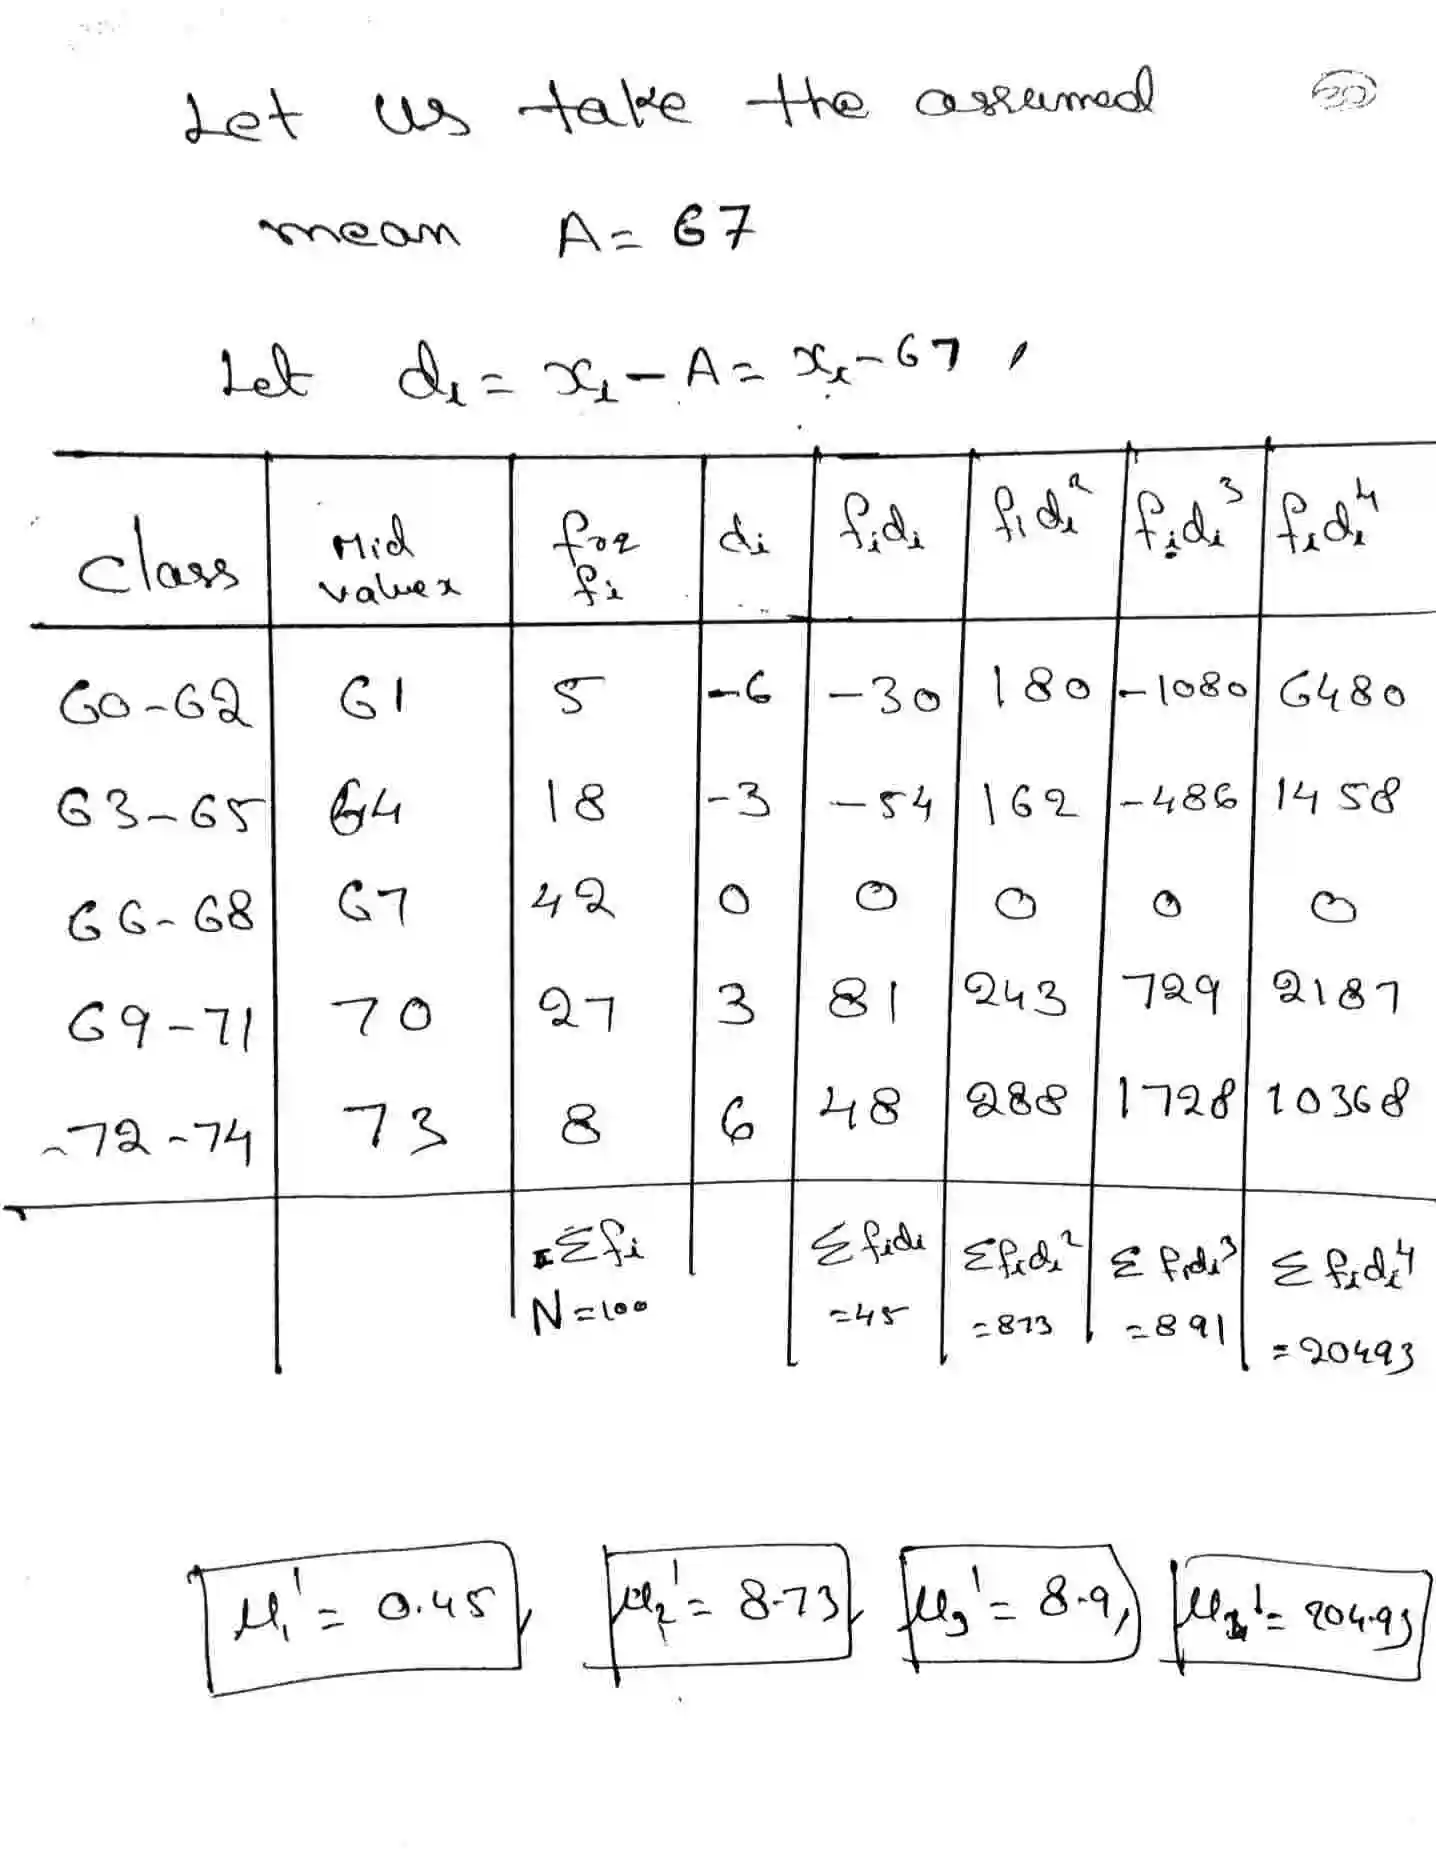 Let us take the assumed
mean A = 67
Let di = xi - A = xi - 67,
class | Mid values | frq fi | di | fidi | fidi² | fidi³ | fidi⁴
60-62 | 61 | 5 | -6 | -30 | 180 | -1080 | 6480
63-65 | 64 | 18 | -3 | -54 | 162 | -486 | 1458
66-68 | 67 | 42 | 0 | 0 | 0 | 0 | 0
69-71 | 70 | 27 | 3 | 81 | 243 | 729 | 2187
72-74 | 73 | 8 | 6 | 48 | 288 | 1728 | 10368
Σfi | Σfidi | Σfidi² | Σfidi³ | Σfidi⁴
N=100 | =45 | =873 | =891 | =20493
μ₁' = 0.45, μ₂' = 8.73, μ₃' = 8.9, = 204.93